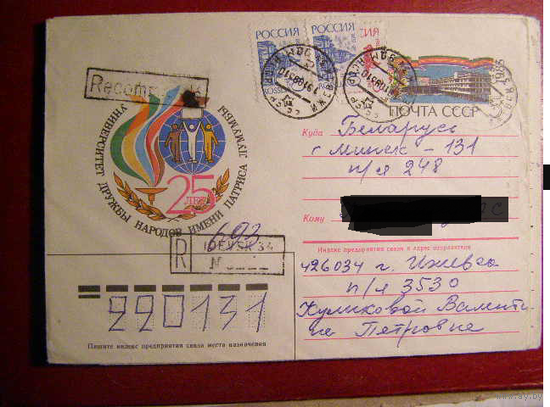 РОССИЯ РОССИЯ
Recom
ПОЧТА СССР
УНИВЕРСИТЕТ ДРУЖБЫ НАРОДОВ ИМЕНИ ПАТРИСА ЛУМУМБЫ
25
ЛЕТ
Куда Беларусь
г Минск - 131
п/я 248
Кому
Индекс предприятия связи и адрес отправителя
R
N
692
426034 г. Ижевск
п/я 3530
Куликовой Валенти-
не Петровне
220131
Пишите индекс предприятия связи места назначения
ay.by